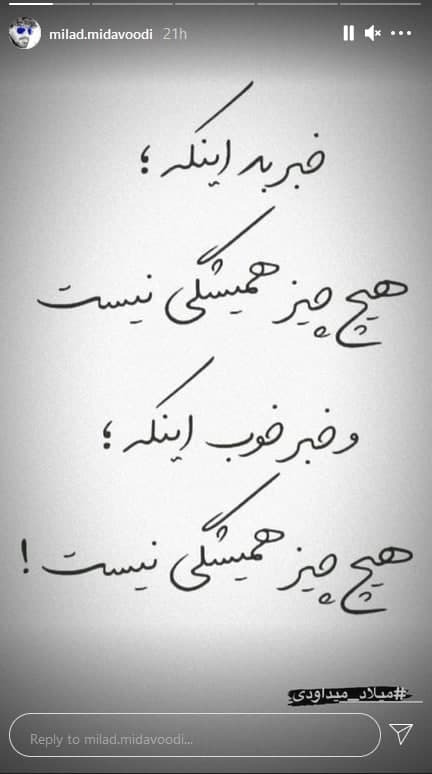 milad.midavoodi 21h
خبر بد اینکه ؛
هیچ چیز همیشگی نیست
و خبر خوب اینکه ؛
هیچ چیز همیشگی نیست !
#میلاد_میداودی
Reply to milad.midavoodi...